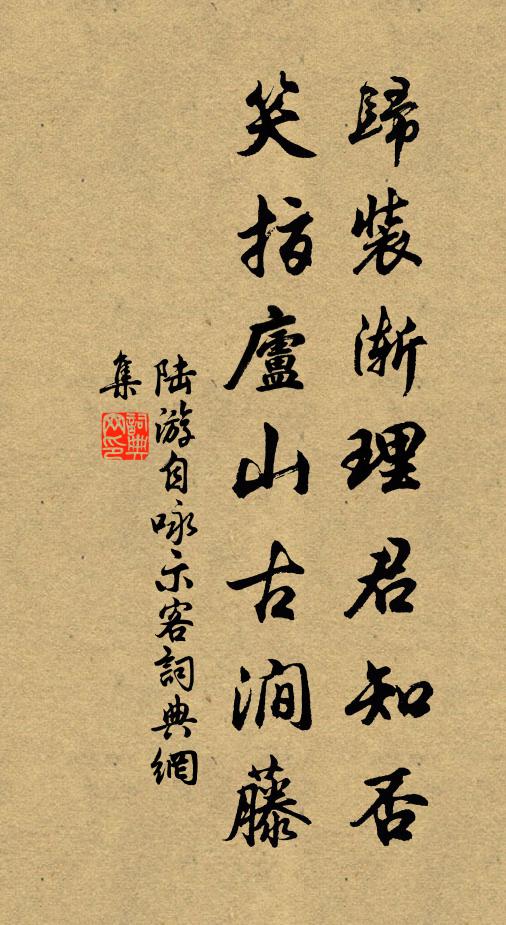 歸裝漸理君知否
笑指廬山古澗藤
陸游自咏示客詞典網
集
詞典
網印